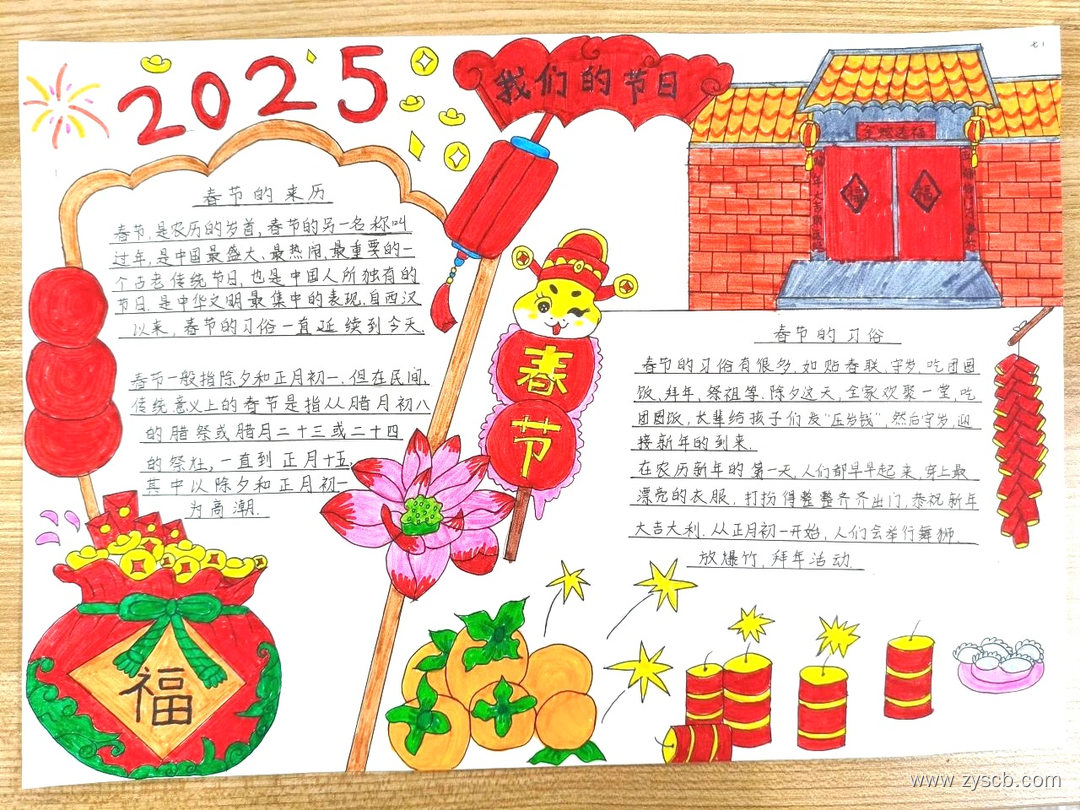 2025
我们的节日
春节的来历
春节，是农历的岁首，春节的另一名称叫
过年，是中国最盛大、最热闹、最重要的一
个古老传统节日，也是中国人所独有的
节日。是中华文明最集中的表现，自西汉
以来，春节的习俗一直延续到今天。
春节一般指除夕和正月初一。但在民间，
传统意义上的春节是指从腊月初八
的腊祭或腊月二十三或二十四
的祭灶，一直到正月十五，
其中以除夕和正月初一
为高潮。
福
春
节
福
福
春节的习俗
春节的习俗有很多，如贴春联，守岁，吃团圆
饭，拜年，祭祖等。除夕这天，全家欢聚一堂，吃
团圆饭，长辈给孩子们发“压岁钱”，然后守岁，迎
接新年的到来。
在农历新年的第一天，人们都早早起来，穿上最
漂亮的衣服，打扮得整整齐齐出门，恭祝新年
大吉大利。从正月初一开始，人们会举行舞狮，
放爆竹，拜年活动。
www.zyscb.com